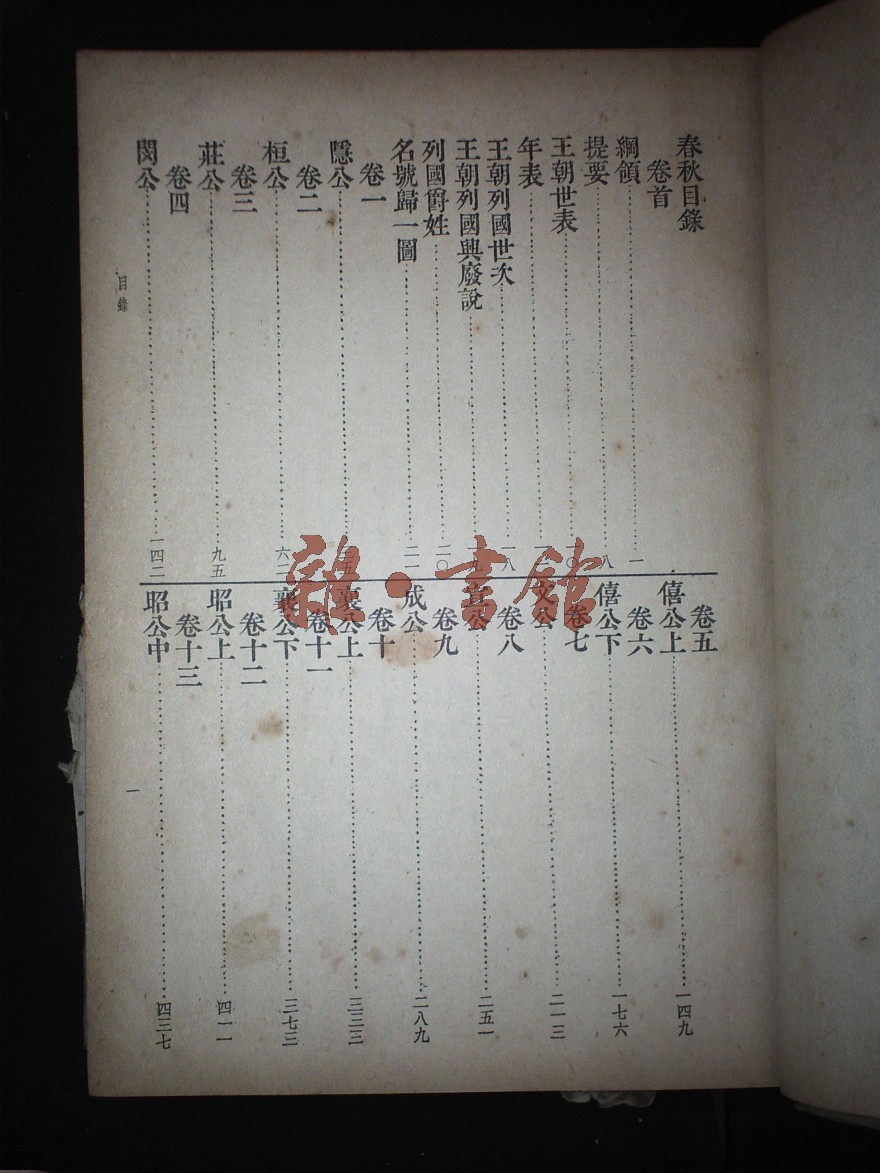 春秋目錄
卷首
綱領……一
提要……八
王朝世表……一〇
年表
王朝列國世次……一八
王朝列國興廢說……一九
列國爵姓……二〇
名號歸一圖……二一
卷一
隱公
卷二
桓公……六二
卷三
莊公……九五
卷四
閔公……一四二
卷五
僖公上……一四九
卷六
僖公下……一七六
卷七
文公……二一三
卷八
宣公……二五一
卷九
成公……二八九
卷十
襄公上……三三三
卷十一
襄公下……三七三
卷十二
昭公上……四一一
卷十三
昭公中……四三七
目錄
一
雜·書館